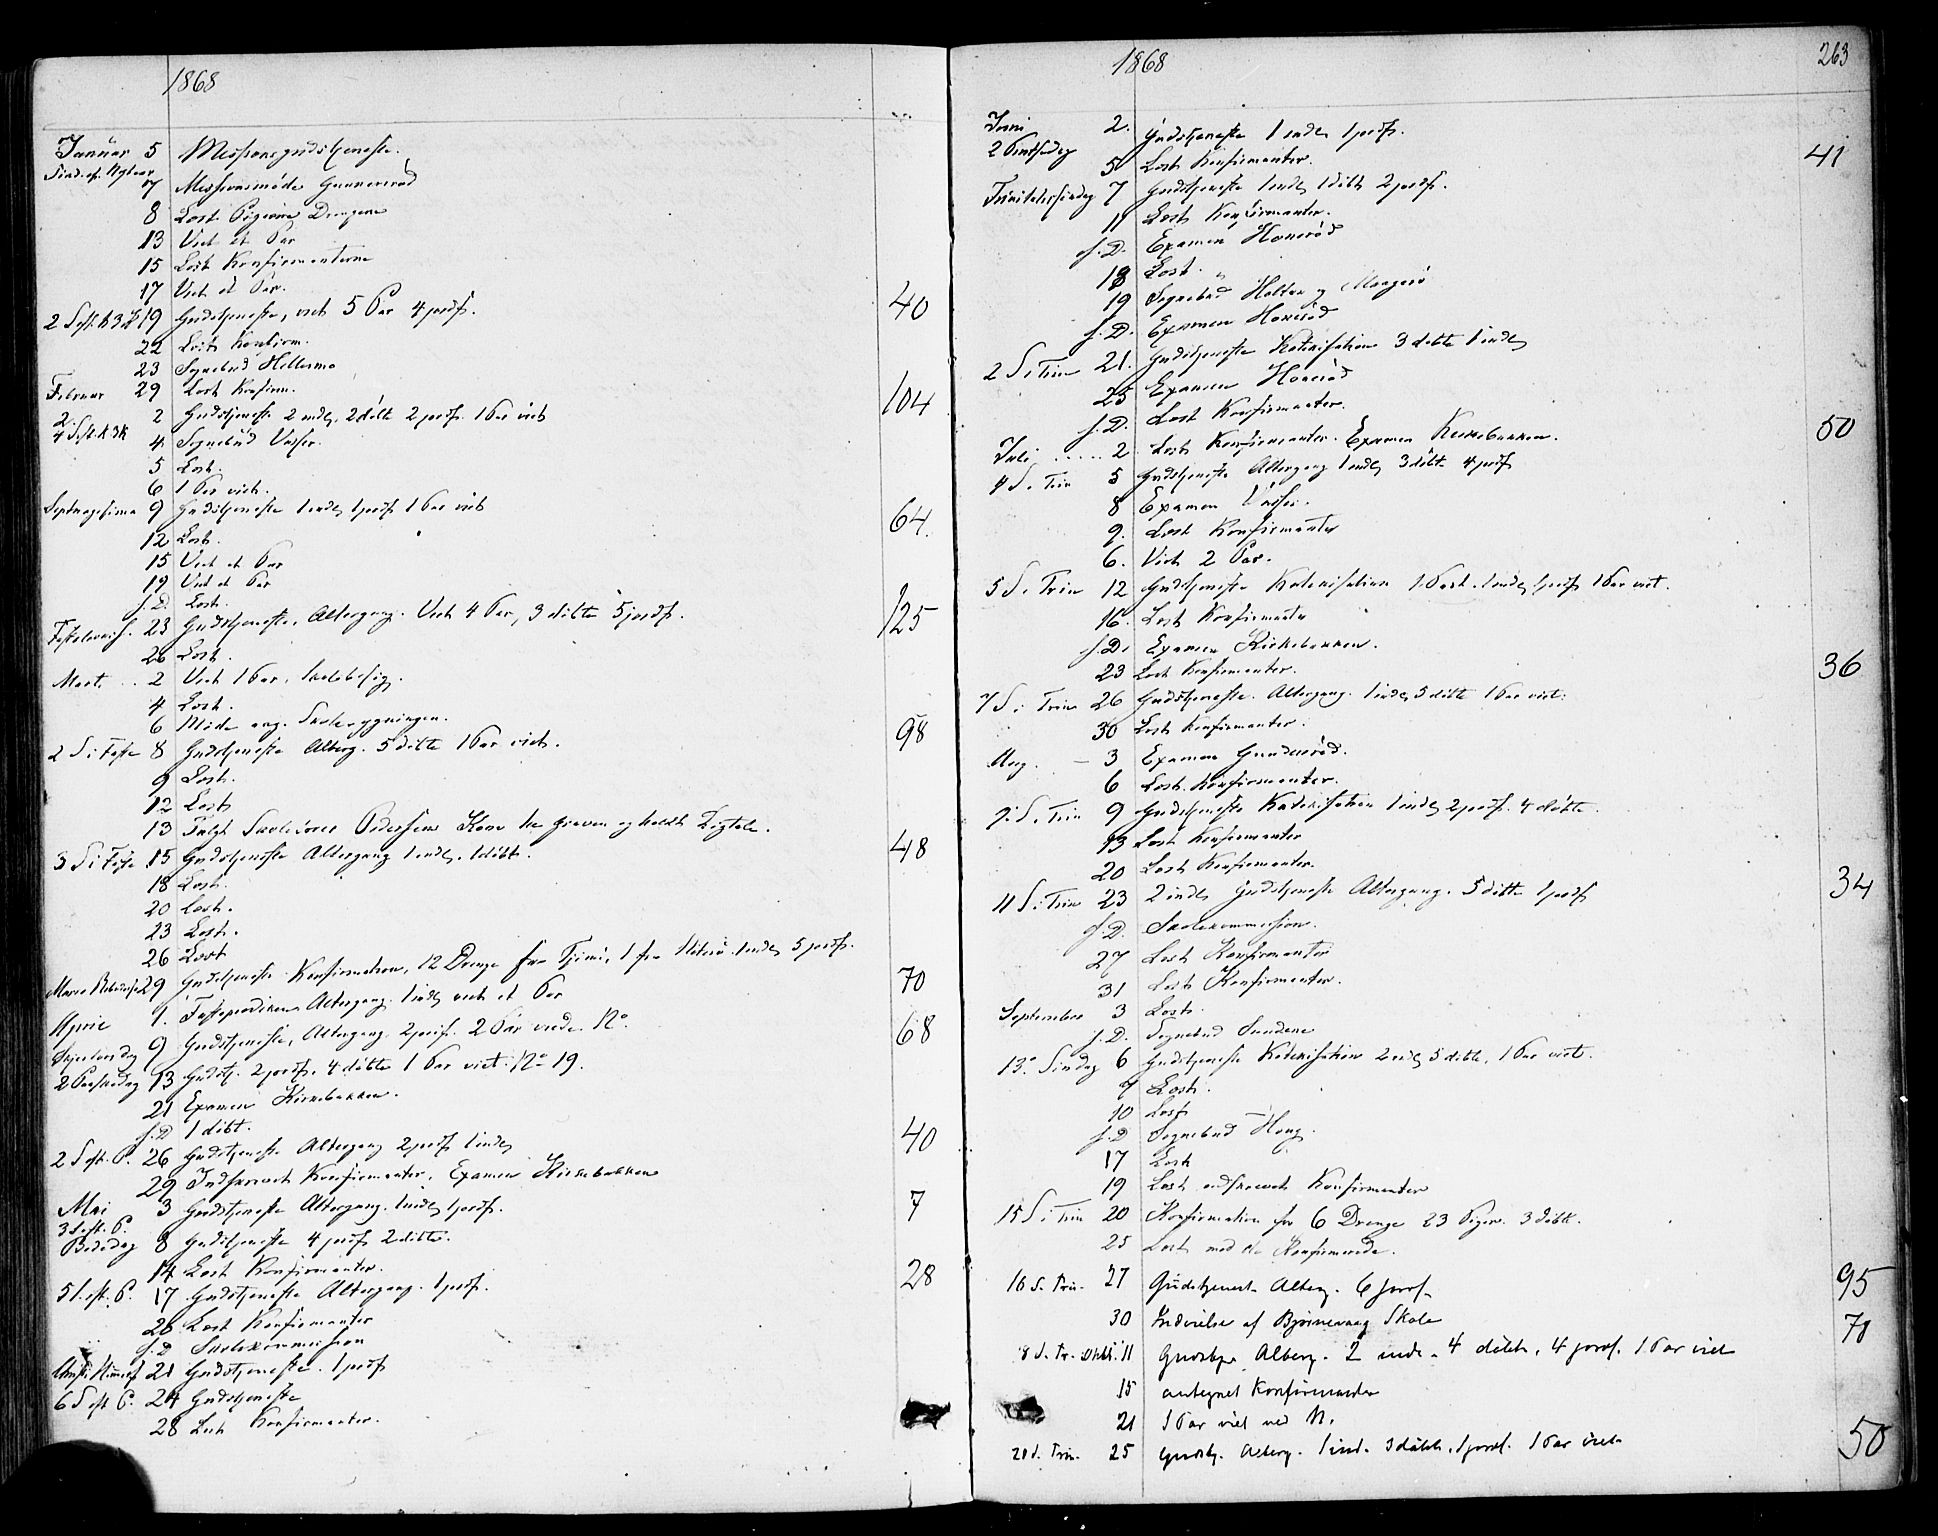 1868
Januar 5 Missionsgudstjeneste.
Sønd. ef. Nytaar
7 Missionsmøde Gunnerød
8 Læst Pigerne Drengene
13 Viet et Par
15 Læst Konfirmanterne
17 Viet et Par.
2 S. eft. H 3 K 19 Gudstjeneste, viet 5 Par 4 jordf. 40
22 Læst Konfirm.
23 Sognebud Hellesmo
Februar 29 Læst Konfirm.
2 Gudstjeneste 2 indl. 2 døbte 2 jordf. 1 Par viet 104
4 S. eft. H 3 K
4 Sognebud Vasser.
5 Læst.
6 1 Par viet.
Septuagesima 9 Gudstjeneste 1 indl. 1 jordf. 1 Par viet 64.
12 Læst.
15 Viet et Par
19 Viet et Par
s. D. Læst.
Fastelavns. 23 Gudstjeneste, Altergang. Viet 4 Par, 3 døbte 5 jordf. 125
26 Læst.
Mart. .. 2 Viet 1 Par. Skolebesøg.
4 Læst.
6 Møde ang. Skolebygningen.
2 S. i Faste 8 Gudstjeneste Alterg. 5 døbte 1 Par viet. 98
9 Læst.
12 Læst
13 Fulgt Skolelærer Pedersens Kone til Graven og holdt Ligtale.
3 S. i Faste 15 Gudstjeneste Altergang 1 indl. 1 døbt. 48
18 Læst.
20 Læst.
23 Læst.
26 Læst
Mariæ Bebudelse 29 Gudstjeneste Konfirmation, 12 Drenge fra Tjømø, 1 fra Nøterø 1 indl. 5 jordf. 70
April 1. Fasteprædiken Altergang. 1 indl. viet et Par
Skjærtorsdag 9 Gudstjeneste, Altergang. 2 jordf. 2 Par viede. N°. 68
2 Paaskedag 13 Gudstj. 2 jordf. 4 døbte 1 Par viet. N° 19.
21 Examen Kirkebakken.
s. D 1 døbt.
2 S. eft. P. 26 Gudstjeneste Altergang 2 jordf. 1 indl. 40
29 Indskrevet Konfirmanter. Examen Kirkebakken
Mai 3 Gudstjeneste Altergang. 1 indl. 1 jordf. 7
3 S. eft. P.
Bededag 8 Gudstjeneste 4 jordf. 2 døbte.
14 Læst Konfirmanter.
5 S. eft. P. 17 Gudstjeneste Altergang. 1 jordf. 28
20 Læst Konfirmanter
s. D Skolekommission
Christi Himmelf. 21 Gudstjeneste. 1 jordf
6 S. eft P. 24 Gudstjeneste
28 Læst Konfirmanter.
1868 263
Juni 2. Gudstjeneste 1 indl. 1 jordf.
2 Pintsedag
5 Læst Konfirmanter. 41
Trinitatissøndag 7 Gudstjeneste 1 indl. 1 døbt 2 jordf.
11 Læst Konfirmanter.
s. D. Examen Havnerød
18 Læst. "
19 Sognebud Holtan og Maagerø
s. D. Examen Havnerød
2 S. i Trin 21. Gudstjeneste Katekisation 3 døbte 1 indl.
25 Examen Havnerød
s. D. Læst Konfirmanter.
Juli ..... 2 Læst Konfirmanter. Examen Kirkebakken. 50
4 S. i Trin 5 Gudstjeneste Altergang 1 indl. 3 døbte 4 jordf
8 Examen Vasser.
9. Læst Konfirmanter
6. Viet 2 Par.
5 S. i Trin 12 Gudstjeneste Katekisation 1 Par 1 indl. 1 jordf 1 Par viet.
16. Læst Konfirmanter
s. D. Examen Kirkebakken.
23 Læst Konfirmanter. 36
7 S. i Trin 26 Gudstjeneste. Altergang. 1 indl. 5 døbte 1 Par viet.
30 Læst Konfirmanter.
Aug. — 3 Examen Gunnerød.
6 Læst Konfirmanter.
9. S. i Trin 9 Gudstjeneste Katekisation 1 indl. 2 jordf. 4 døbte.
13 Læst Konfirmanter
20 Læst Konfirmanter.
11 S. i Trin 23 2 indl. Gudstjeneste Altergang. 5 døbte 1 jordf 34
s. D. Skolekommission.
27 Læst Konfirmanter
31 Læst Konfirmanter.
September 3 Læst.
s. D. Sognebud Sundene
13. Søndag 6 Gudstjeneste Katekisation 2 indl. 5 døbte, 1 Par viet.
7 Læst.
10 Læst
s. D Sognebud Haug.
17 Læst
19 Læst indskrevet Konfirmanter
15 S. i Trin 20 Konfirmation for 6 Drenge 23 Piger. 3 døbt.
25 Læst med de Konfirmerede.
16 S. Trin. 27 Gudstjenest. Alterg. 6 jordf. 95
30 Indvielse af Bjørnevaag Skole
18 S. Tr. Oktb. 11 Gudstje Alterg. 2 indl. 4 døbte, 4 jordf. 1 Par viet 71
15 antegnet Konfirmander
21 1 Par viet ved N.
20 S. Trin. 25 Gudstj. Alterg. 1 ind. 3 døbte. 1 jordf. 1 Par viet 50